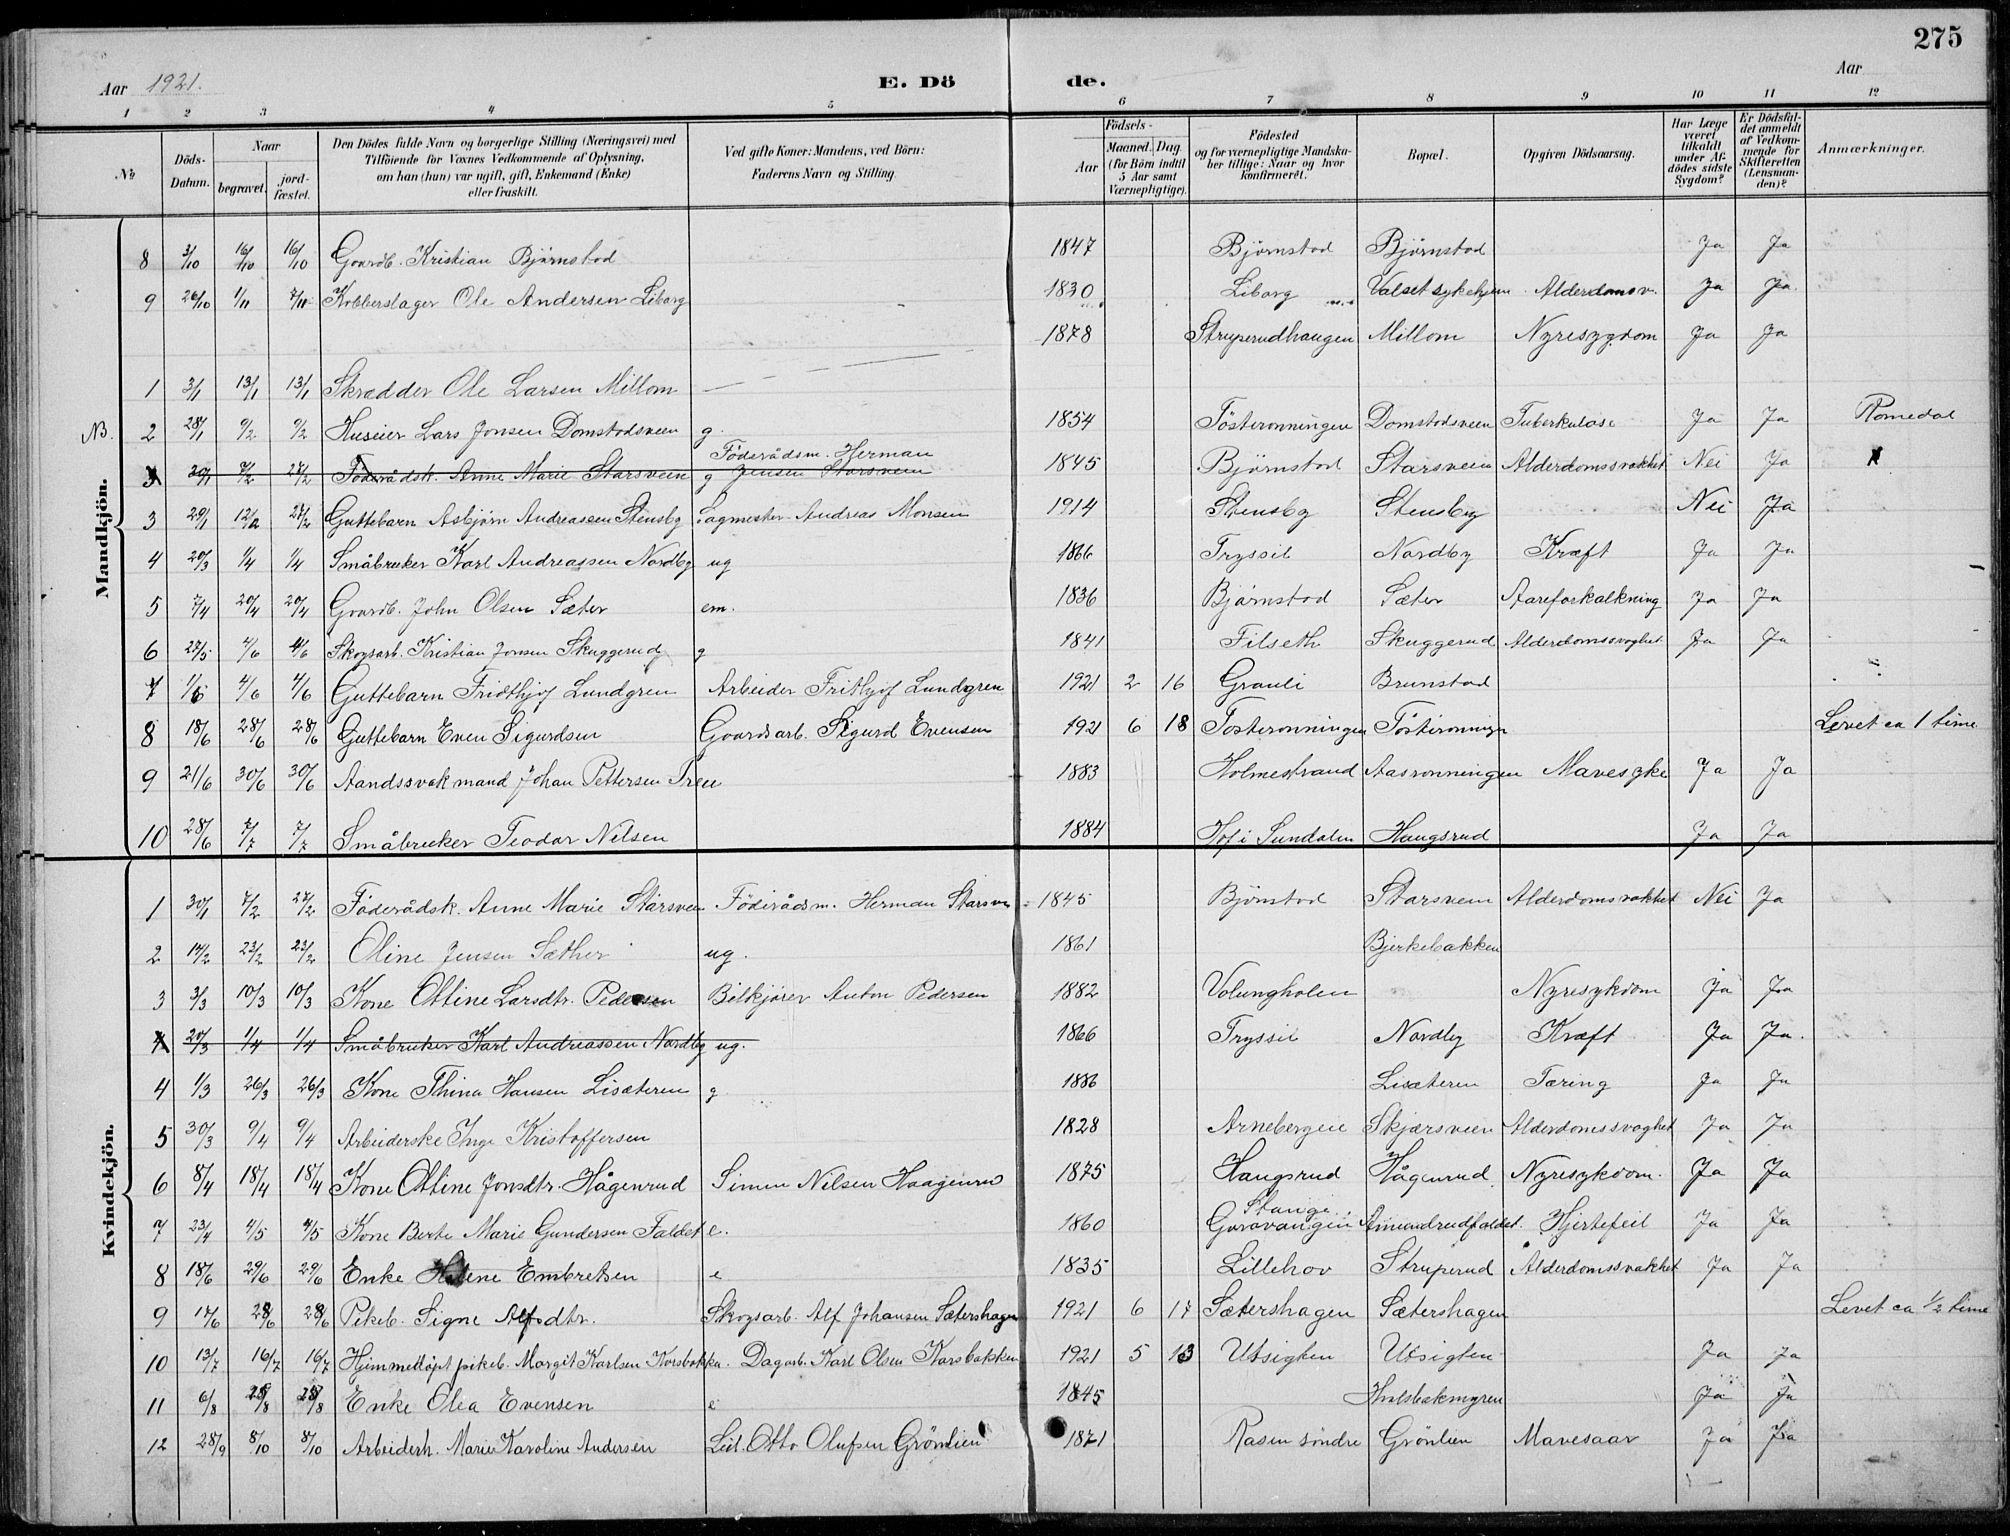 275
Aar 1921. E. Dö de. Aar
1 2 3 4 5 6 7 8 9 10 11 12
№ Döds-Datum. Naar begravet. jord-fæstet. Den Dödes fulde Navn og borgerlige Stilling (Næringsvei) med Tilföiende for Voxnes Vedkommende af Oplysning, om han (hun) var ugift, gift, Enkemand (Enke) eller fraskilt. Ved gifte Koner: Mandens, ved Börn: Faderens Navn og Stilling. Aar Födsels- Maaned. Dag. (for Börn indtil 5 Aar samt Værnepligtige). Födested og for værnepligtige Mandskaber tillige: Naar og hvor konfirmeret. Bopæl. Opgiven Dödsaarsag. Har Læge været tilkaldt under Afdödes sidste Sygdom? Er Dödsfaldet anmeldt af Vedkommende for Skifteretten (Lensmanden)? Anmærkninger.
Mandkjön.
8 3/10 16/10 16/10 Gaardb. Kristian Bjørnstad 1847 Bjørnstad Bjørnstad Ja Ja
9 26/10 1/11 7/11 Kobberslager Ole Andersen Liborg 1830 Liborg Valset sykehjem Alderdomsv. Ja Ja
1878 Struperudhaugen Millom Nyresygdom Ja Ja
1 3/1 13/1 13/1 Skrædder Ole Larsen Millom —
NB. 2 28/1 9/2 9/2 Huseier Lars Jonsen Domstadsveen g. 1854 Tösteronningen Domstadsveen Tuberkulose Ja Ja Romedal
3 30/1 7/2 27/2 Föderådsk. Anne Marie Starsveen g Föderådsm. Herman Jensen Starsveen 1845 Bjørnstad Starsveien Alderdomssvakhet Nei Ja
3 29/1 12/2 27/2 Guttebarn Asbjørn Andreassen Stensby Sagmester Andreas Monsen 1914 Stensby Stensby Nei Ja
4 20/3 1/4 1/4 Småbruker Karl Andreassen Nordby ug 1866 Tryssil Nordby Kræft Ja Ja
5 7/4 20/4 20/4 Gaardb. John Olsen Sæter em. 1836 Bjørnstad Sæter Aareforkalkning Ja Ja
6 27/5 4/6 4/6 Skogsarb. Kristian Jonsen Skuggerud g 1841 Filseth Skuggerud Alderdomssvaghet Ja Ja
7 1/6 4/6 4/6 Guttebarn Fridthjof Lundgren Arbeider Frithjof Lundgren 1921 2 16 Grauli Brunstad
8 18/6 28/6 28/6 Guttebarn Even Sigurdsen Gaardsarb. Sigurd Evensen 1921 6 18 Tosteronningen Tösteronningn Levet ca 1 time
9 21/6 30/6 30/6 Aandssvak mand Johan Pettersen Treu 1883 Holmestrand Aasronningen Mavesyke Ja Ja
10 28/6 7/7 7/7 Småbruker Teodor Nilsen 1884 Hof i Sundalen Haugsrud Ja Ja
Kvindekjön.
1 30/1 7/2 27/2 Föderådsk. Anne Marie Starsveen Föderådsm. Herman Starsve 1845 Bjønstad Starsveen Alderdomsvakhet Nei Ja
2 14/2 23/2 23/2 Oline Jensen Sæther ug. 1861 Bjerkebakken
3 3/3 10/3 10/3 Kone Ottine Larsdtr. Pedersen Bilkjører Anton Pedersen 1882 Volungholen Nyresykdom Ja Ja
4 20/3 1/4 1/4 Småbruker Karl Andreassen Nordby ug. 1866 Tryssil Nordby Kræft Ja Ja.
4 1/3 26/3 26/3 Kone Thina Hansen Lisæteren g 1886 Lisæteren Tæring Ja Ja
5 30/3 9/4 9/4 Arbeiderske Inge Kristoffersen 1828 Arnebergeie Skjærsveien Alderdomssvaghet Ja Ja
6 8/4 18/4 18/4 Kone Ottine Jonsdtr. Hågenrud Simen Nilsen Haagenru 1875 Haugsrud Hågenrud Nyresykdom. Ja Ja
7 23/4 4/5 4/5 Kone Berte Marie Gundersen Faldet e. 1860 Stange Amundrudfaldet Hjertefeil Ja Ja
8 18/6 29/6 29/6 Enke Helene Embretsen e 1835 Lillehov Struperud Alderdomssvakhet Ja Ja
9 17/6 28/6 28/6 Pikeb. Signe Alfsdtr. Skogsarb. Alf Johansen Sætershagen 1921 6 17 Sætershagen Sætershagen Levet ca 1/2 time
10 13/7 16/7 16/7 Hjemmedöpt pikeb. Margit Karlsen Korsbakken. Dagarb. Karl Olsen Karsbakken 1921 5 13 Utsigten Utsigten Ja Ja
11 6/8 28/8 28/8 Enke Olea Evensen e 1845 Hulsbakmyren Ja Ja
12 28/9 8/10 8/10 Arbeiderh. Marie Karoline Andersen Leil. Otto Olufsen Grönlien 1871 Rasen søndre Grönlien Mavesaar Ja Ja